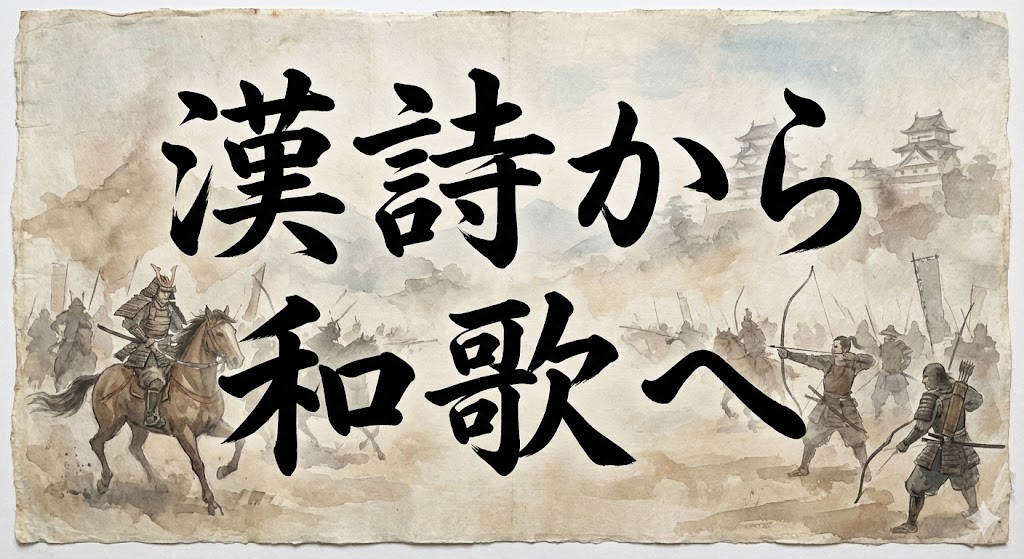 漢詩から
和歌へ